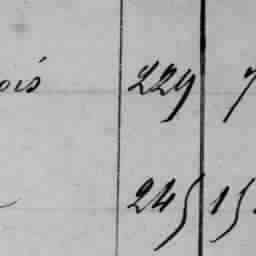 ois 229 7
245 15